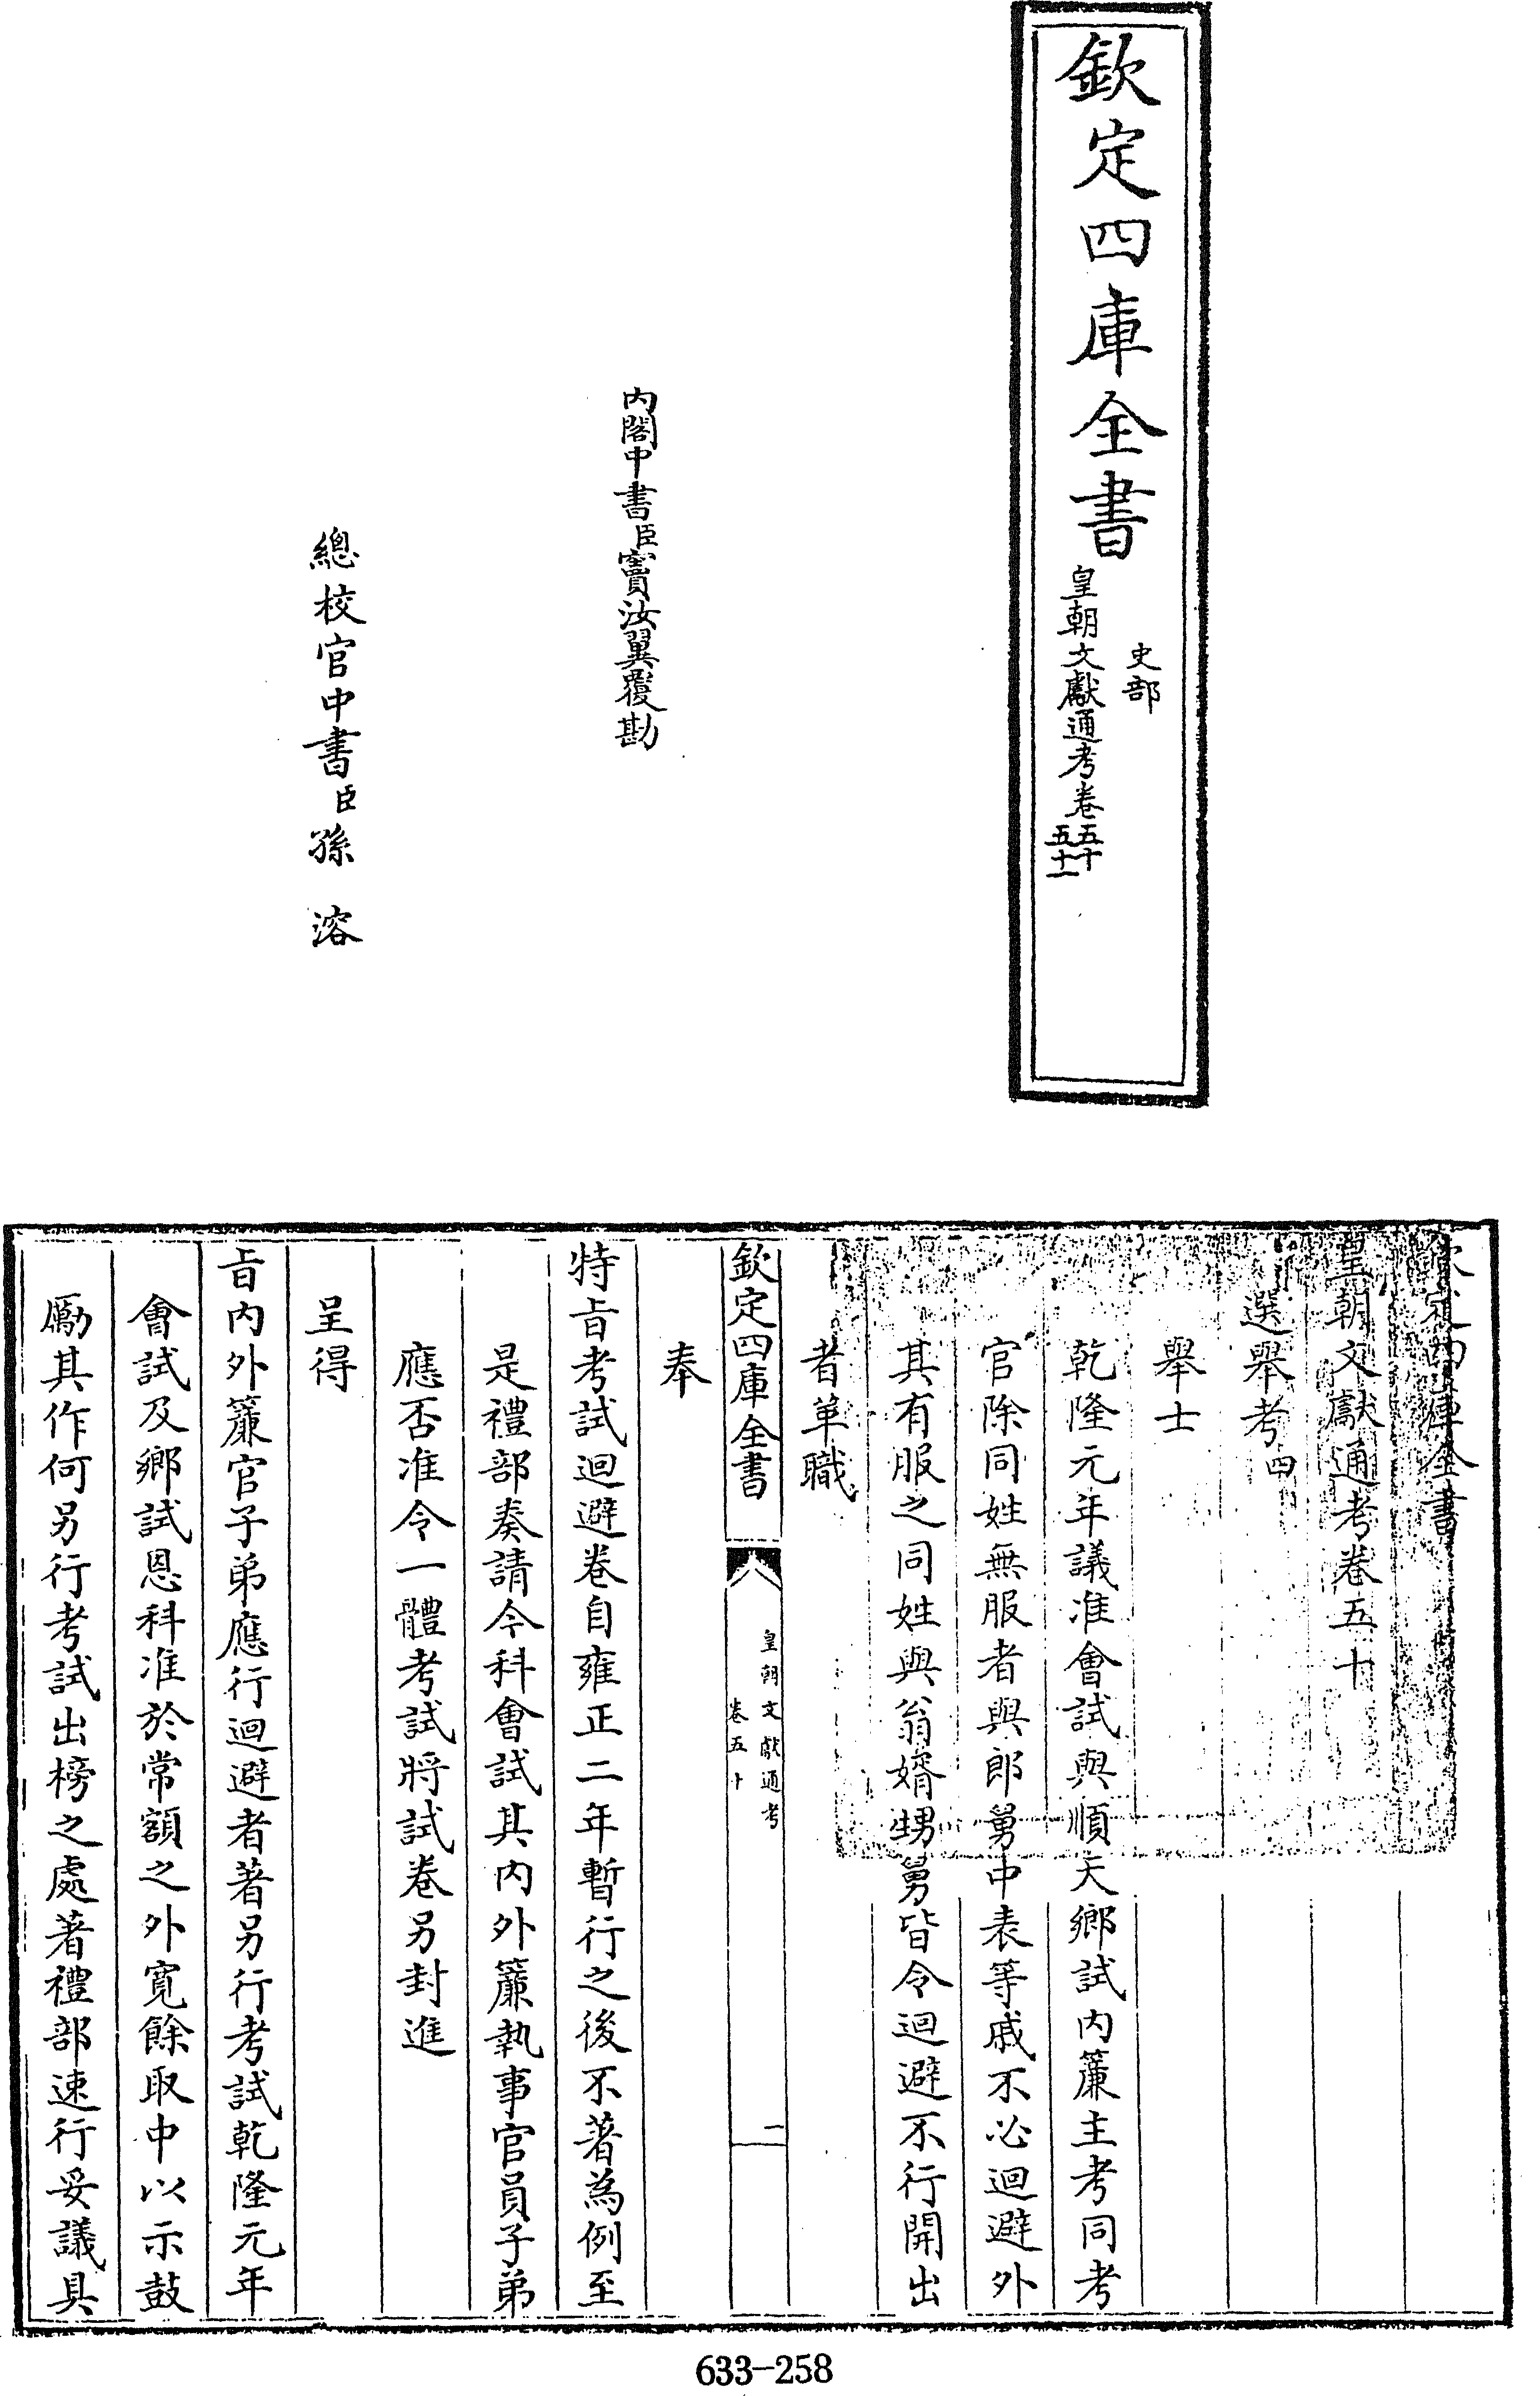 欽定四庫全書
史部
皇朝文獻通考卷五十
五十一
內閣中書臣竇汝翼覆勘
總校官中書臣孫溶
欽定四庫全書
皇朝文獻通考卷五十
選舉考四
舉士
乾隆元年議准會試與順天鄉試內簾主考同考
官除同姓無服者與郎舅中表等戚不必迴避外
其有服之同姓與翁婿甥舅皆令迴避不行開出
者革職
欽定四庫全書
皇朝文獻通考
卷五十
一
奉
特旨考試迴避卷自雍正二年暫行之後不著為例至
是禮部奏請今科會試其內外簾執事官員子弟
應否准令一體考試將試卷另封進
呈得
旨內外簾官子弟應行迴避者著另行考試乾隆元年
會試及鄉試恩科准於常額之外寬餘取中以示鼓
勵其作何另行考試出榜之處著禮部速行妥議具
633-258